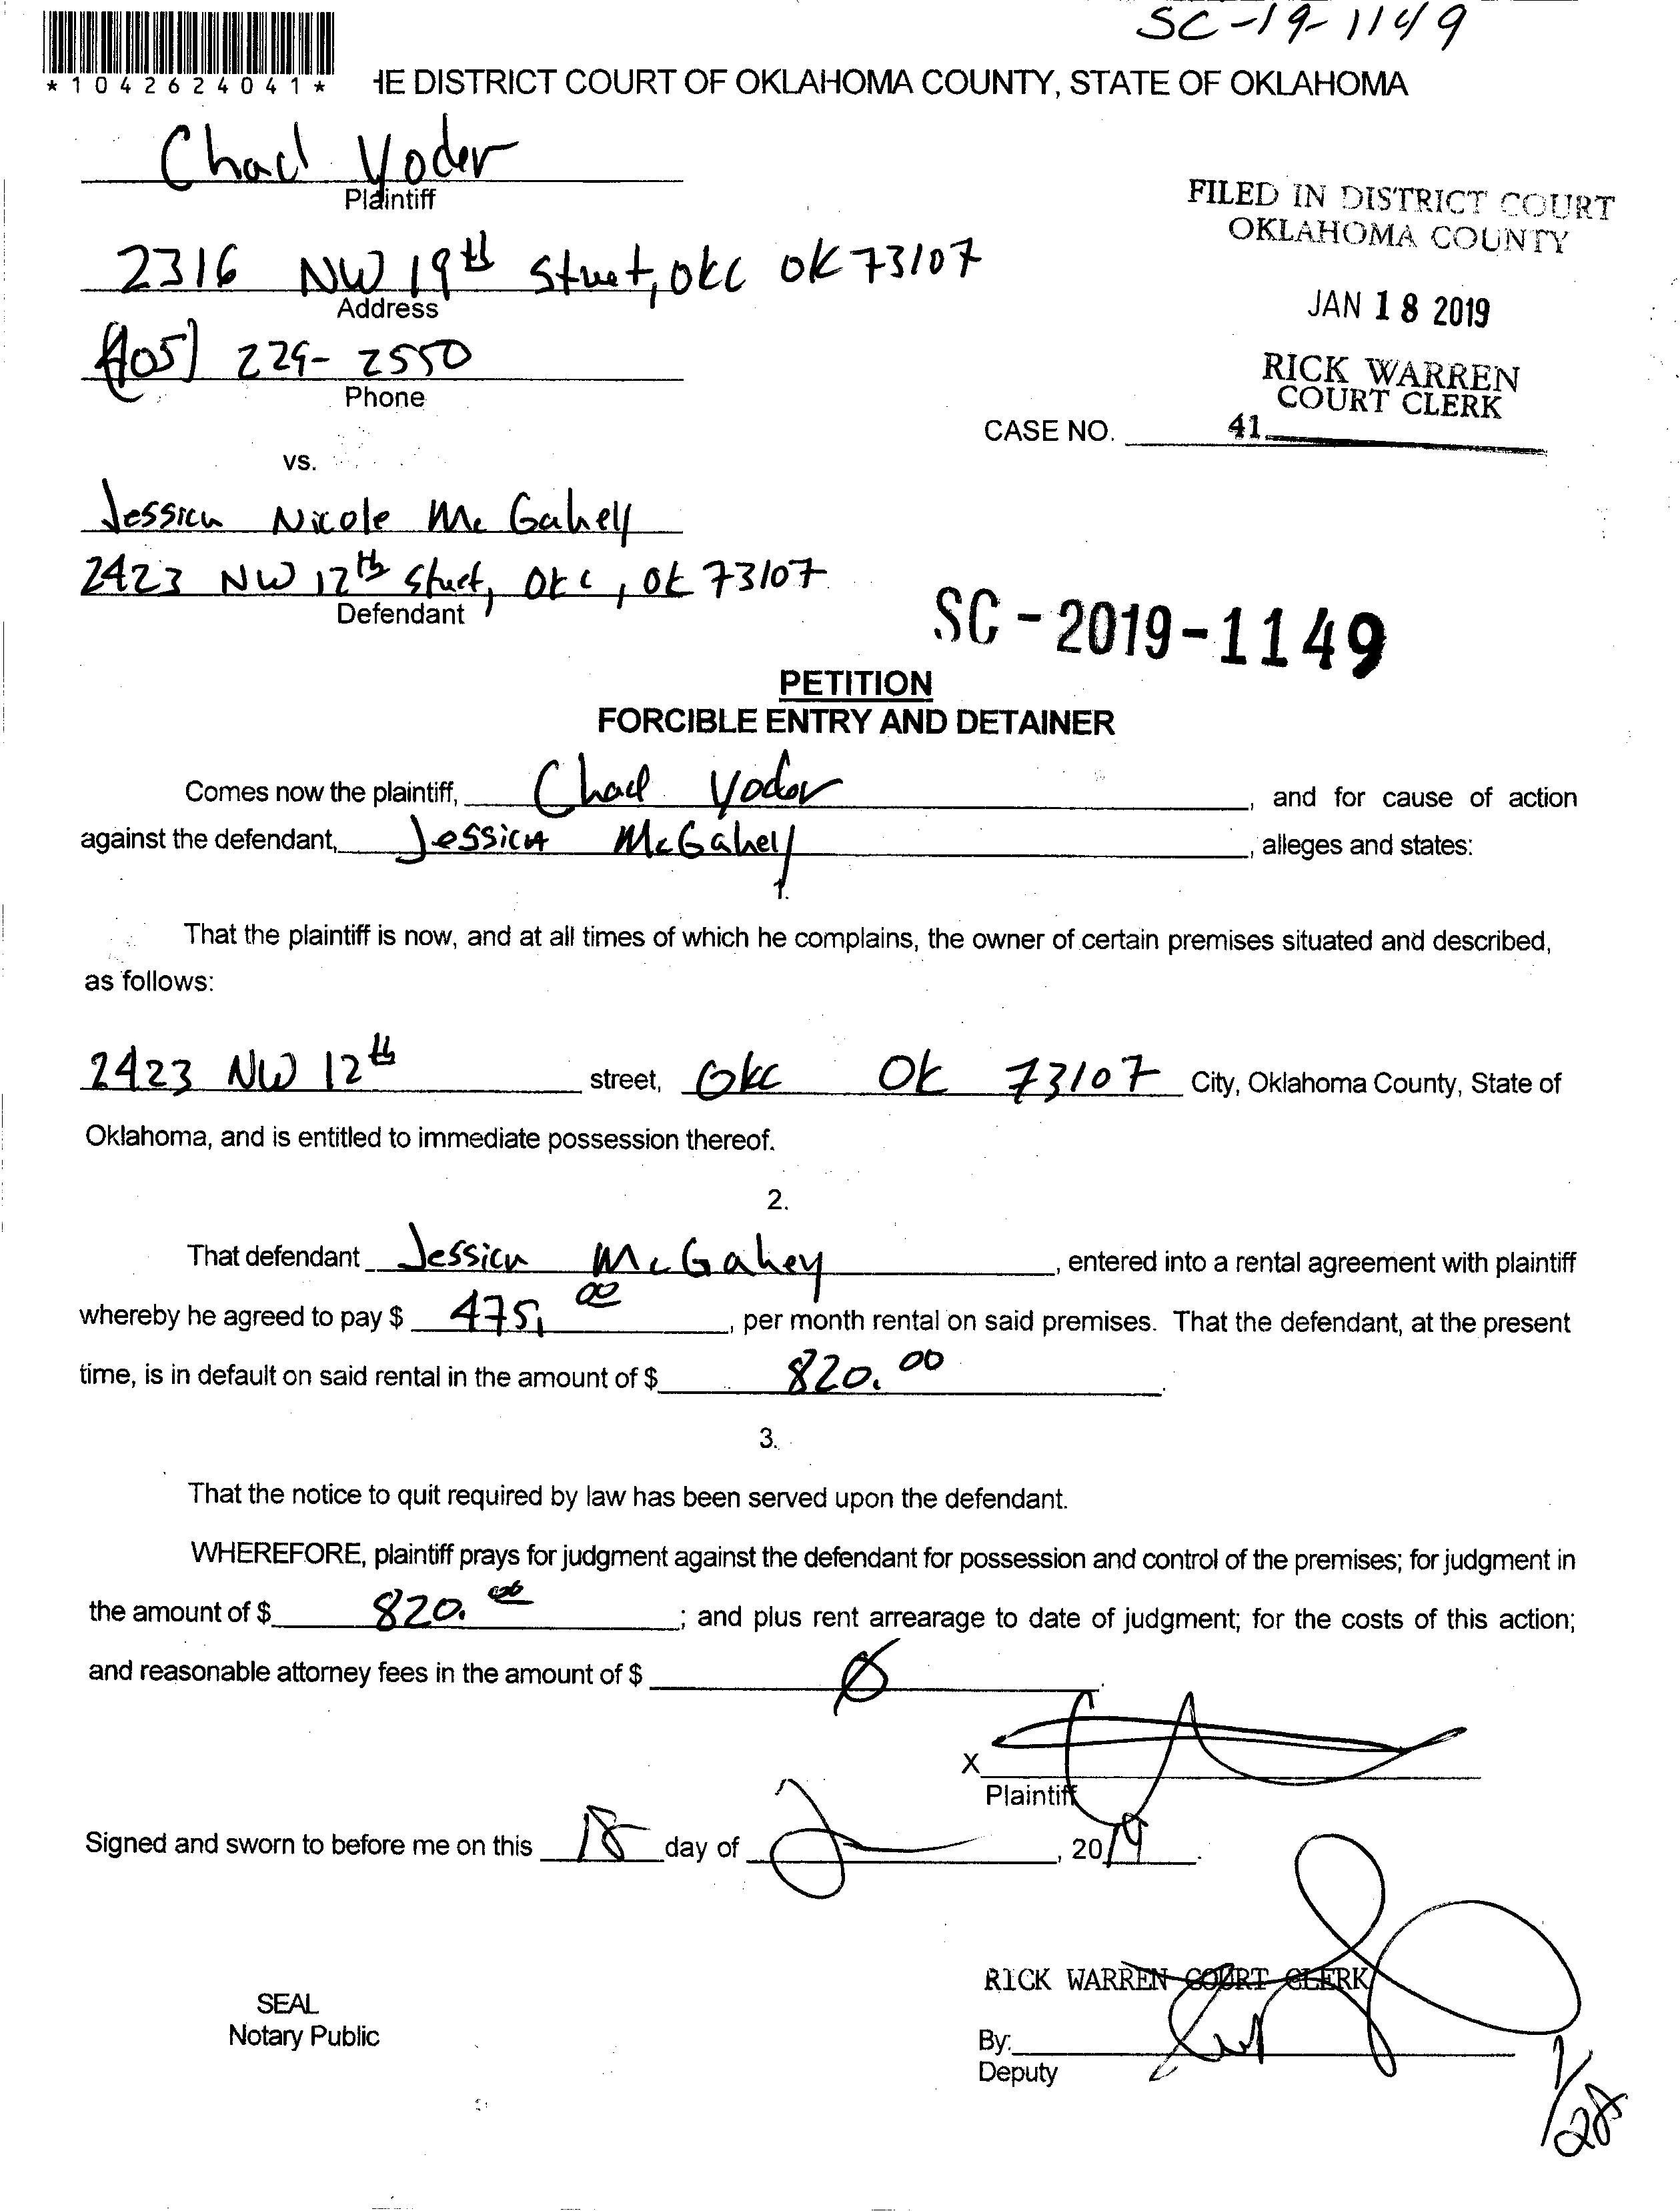 SC-19-1149
*1042624041*
HE DISTRICT COURT OF OKLAHOMA COUNTY, STATE OF OKLAHOMA
Chad Yoder
Plaintiff
FILED IN DISTRICT COURT
OKLAHOMA COUNTY
2316 NW 19th Street, OKC OK 73107
Address
JAN 18 2019
(405) 229-2550
Phone
RICK WARREN
COURT CLERK
CASE NO. 41
vs.
Jessica Nicole McGahey
2423 NW 12th Street, OKC, OK 73107
Defendant
SC-2019-1149
PETITION
FORCIBLE ENTRY AND DETAINER
Comes now the plaintiff, Chad Yoder, and for cause of action
against the defendant, Jessica McGahey, alleges and states:
1.
That the plaintiff is now, and at all times of which he complains, the owner of certain premises situated and described,
as follows:
2423 NW 12th street, OKC OK 73107 City, Oklahoma County, State of
Oklahoma, and is entitled to immediate possession thereof.
2.
That defendant Jessica McGahey, entered into a rental agreement with plaintiff
whereby he agreed to pay $ 475.00, per month rental on said premises. That the defendant, at the present
time, is in default on said rental in the amount of $ 820.00.
3.
That the notice to quit required by law has been served upon the defendant.
WHEREFORE, plaintiff prays for judgment against the defendant for possession and control of the premises; for judgment in
the amount of $ 820.00; and plus rent arrearage to date of judgment; for the costs of this action;
and reasonable attorney fees in the amount of $ Ø.
X
Plaintiff
Signed and sworn to before me on this 18 day of , 2019.
RICK WARREN COURT CLERK
SEAL
Notary Public
By:
Deputy
1/28